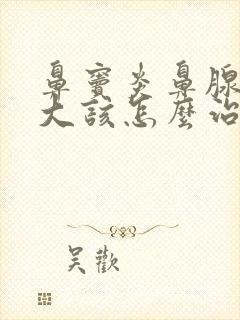 鼻竇炎鼻腺
大該怎麼治
吳歡